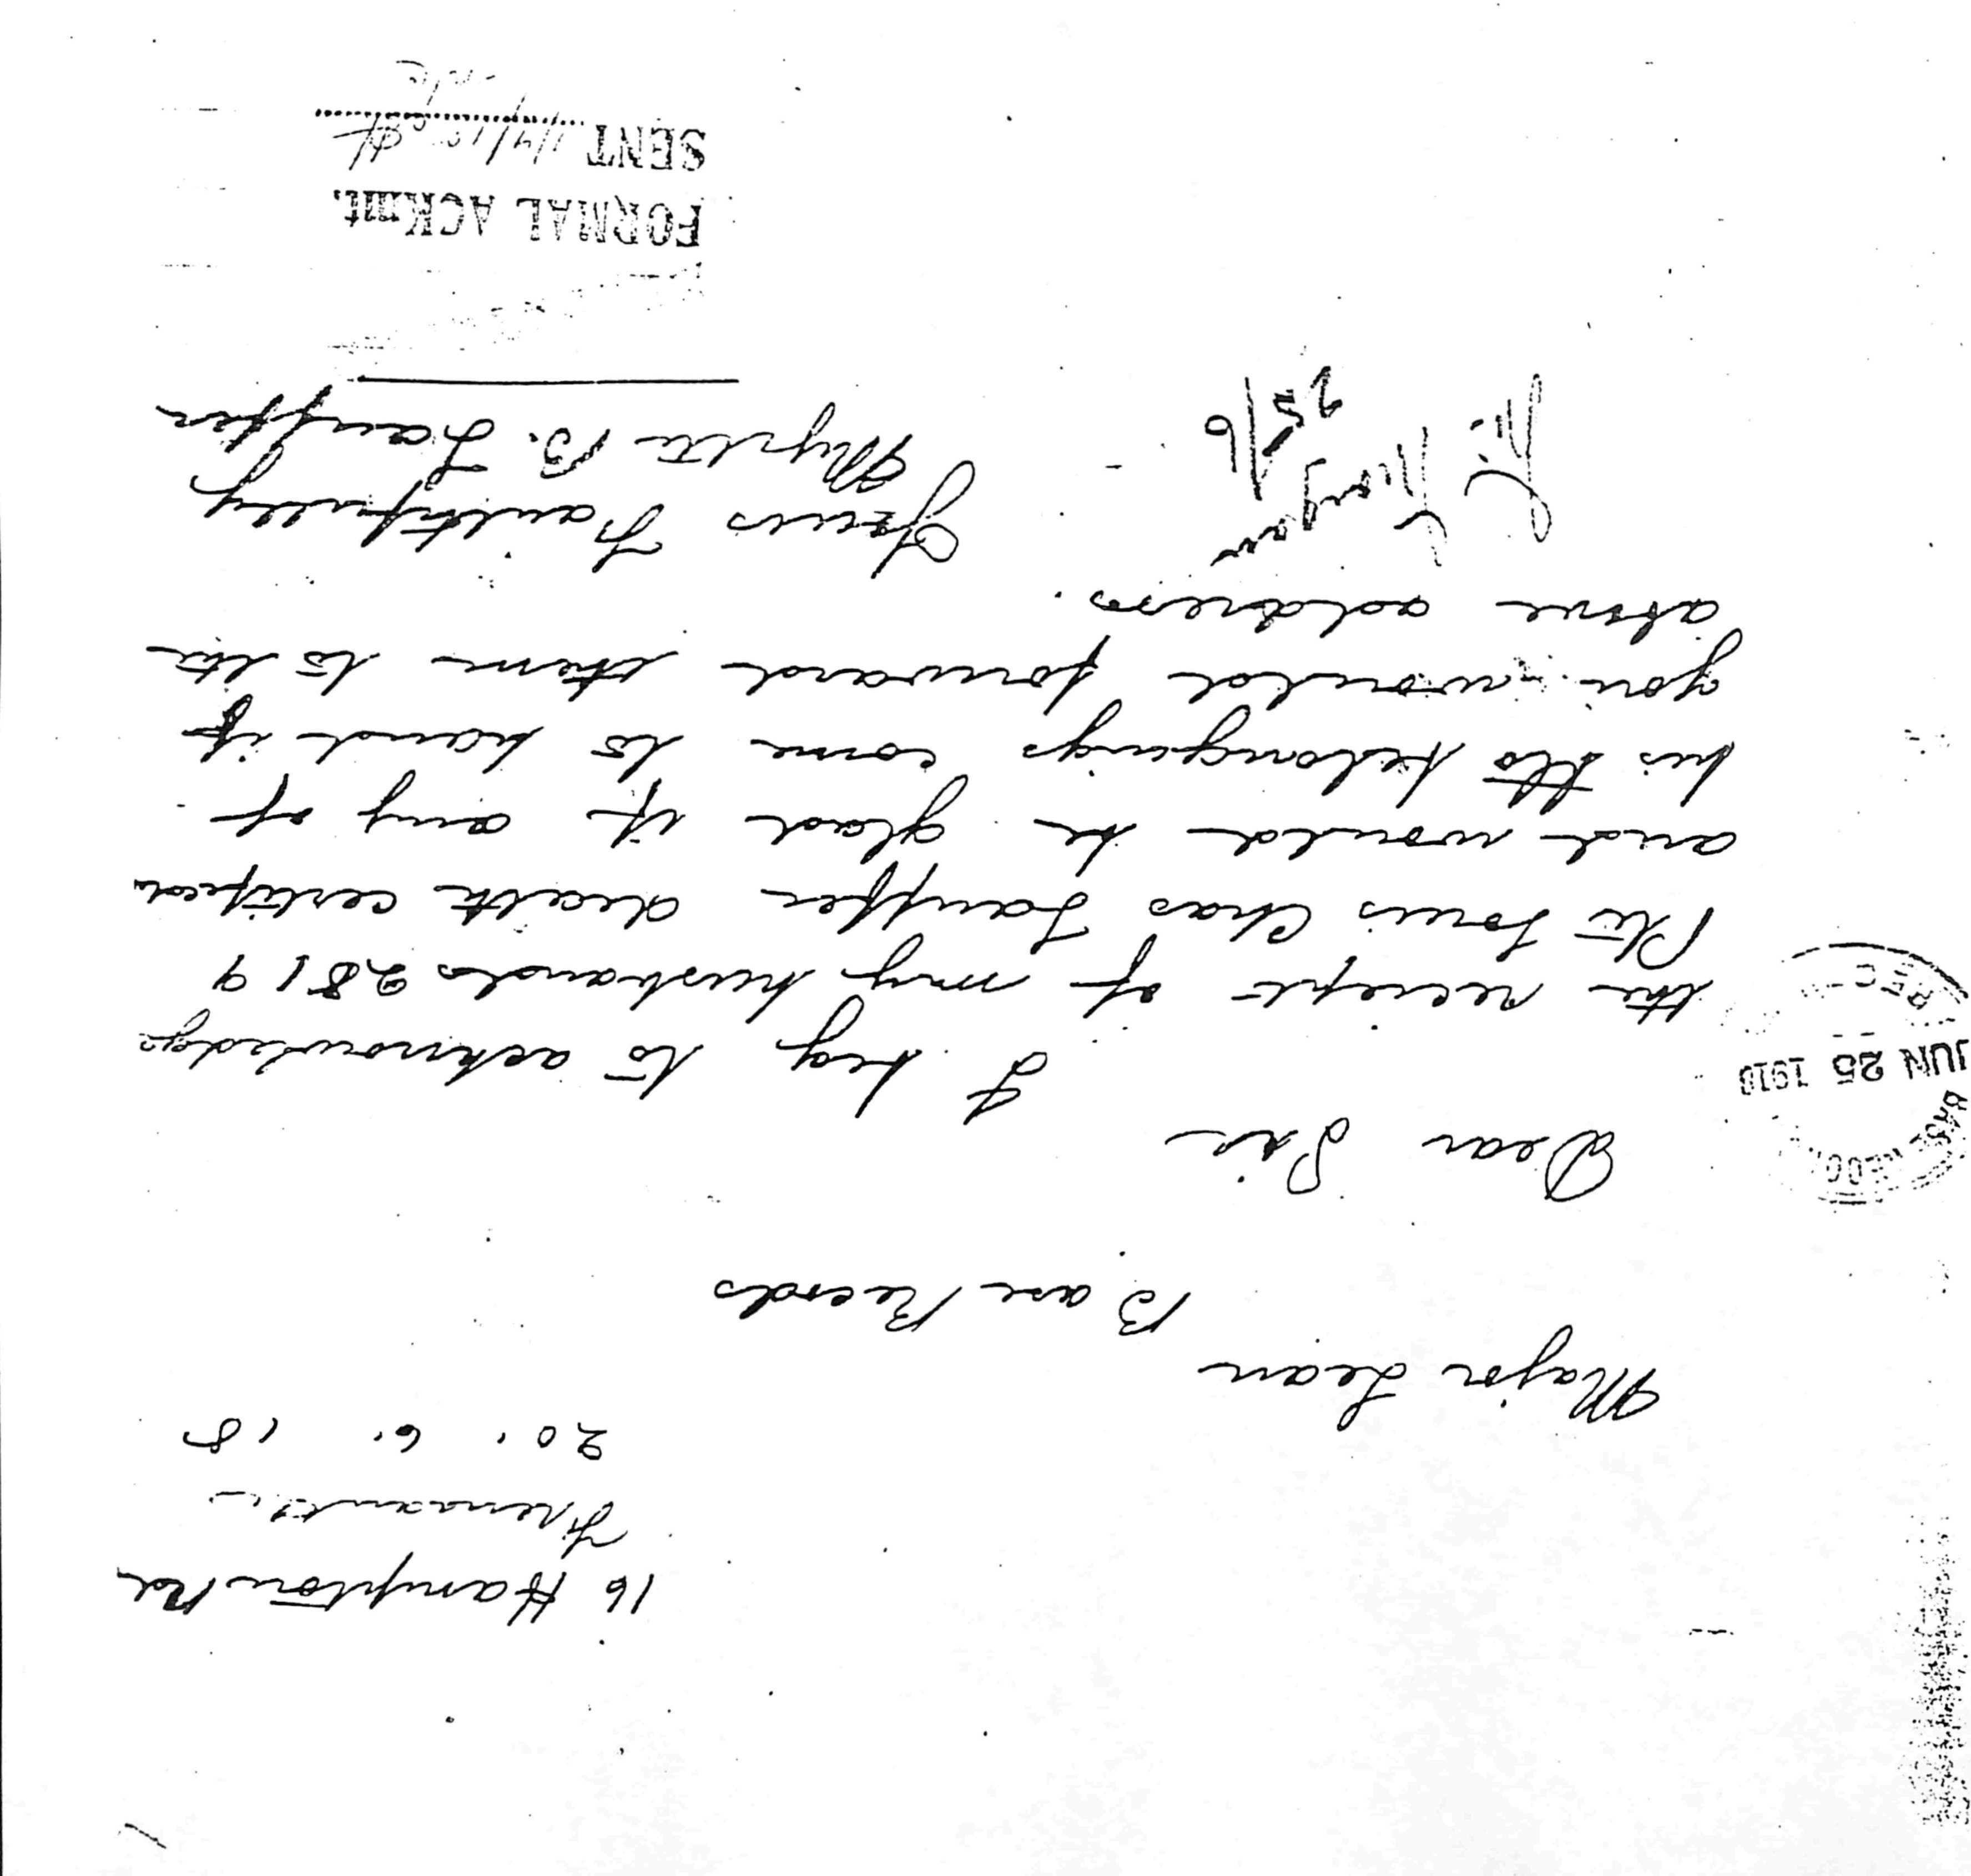 16 Hampton Rd
Fremantle
20. 6. 18
Major Lean
Base Records
Dear Sir
I beg to acknowledge
the reciept of my husbands 2819
Pte Louis Chas Lauffer death certificate
and would be glad if any of
his kto belongings come to hand if
you would forward them to the
above address.
Yours Faithfully
Myrta B. Lauffer
25/6
JUN 25 1918
REC
FORMAL ACKmt.
SENT